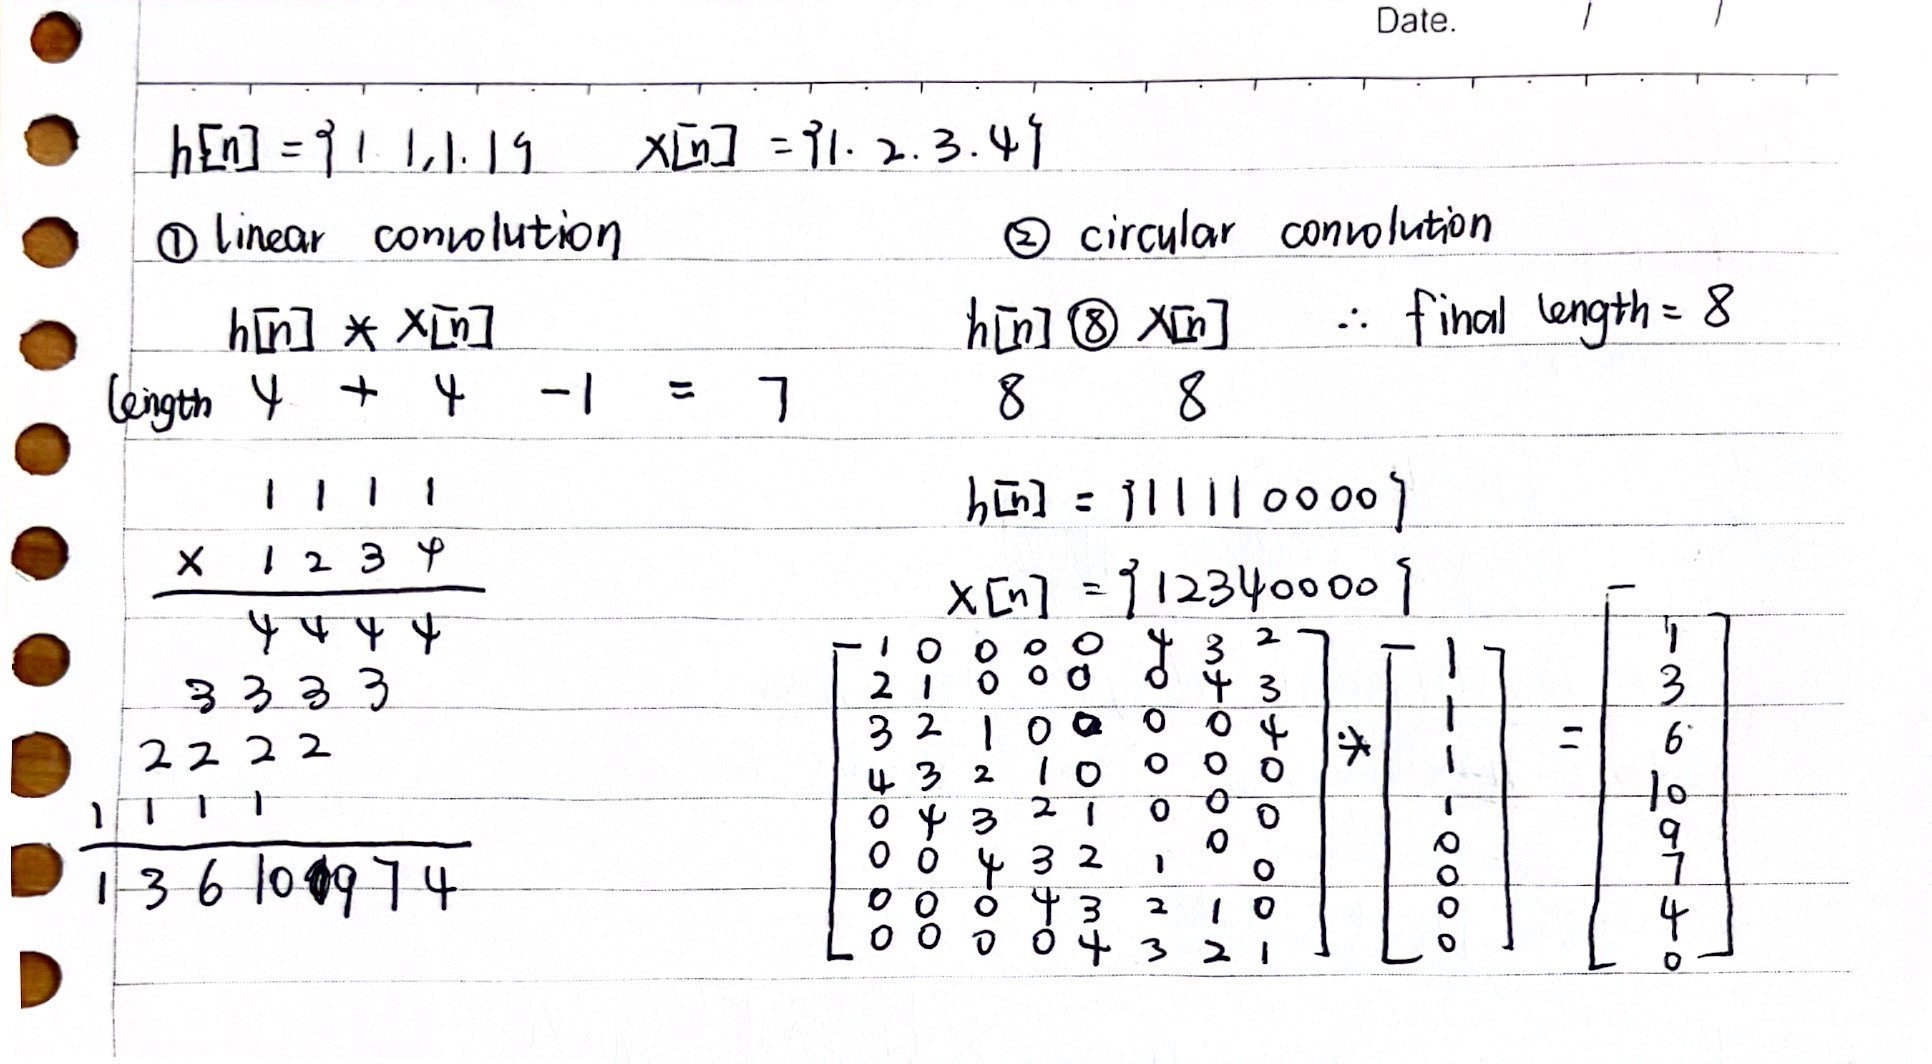 Date. / /
h[n] = {1. 1, 1. 1} x[n] = {1. 2. 3. 4}
① linear convolution
h[n] * x[n]
length 4 + 4 -1 = 7
1 1 1 1
x 1 2 3 4
4 4 4 4
3 3 3 3
2 2 2 2
1 1 1 1
1 3 6 10 9 7 4
② circular convolution
h[n] ⑧ x[n] ∴ final length = 8
8 8
h[n] = {11110000}
x[n] = {12340000}
1 0 0 0 0 4 3 2 1 1
2 1 0 0 0 0 4 3 1 3
3 2 1 0 0 0 0 4 * 1 = 6
4 3 2 1 0 0 0 0 1 10
0 4 3 2 1 0 0 0 0 9
0 0 4 3 2 1 0 0 0 7
0 0 0 4 3 2 1 0 0 4
0 0 0 0 4 3 2 1 0 0